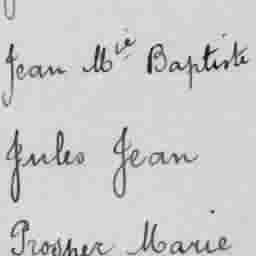 Jean Mie Baptiste
Jules Jean
Prosper Marie